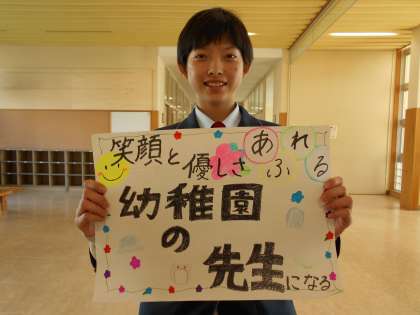 笑顔と優しさあふれる
幼稚園
の
先生になる